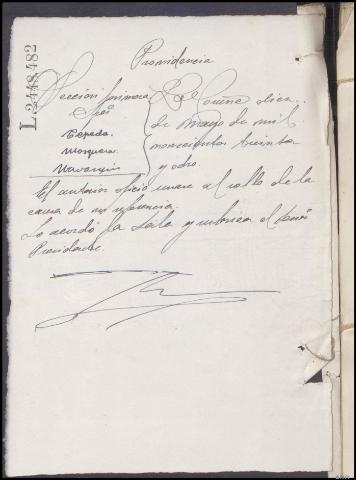 Providencia
L.2448,482
Sección primera
Sres
Cepeda.
Mosquera
Navarrín
La Coruña diez
de mayo de mil
novecientos treinta
y ocho.
El anterior oficio unase al rollo de la
causa de su referencia.
Lo acordó la Sala y rubrica el Señor
Presidente.